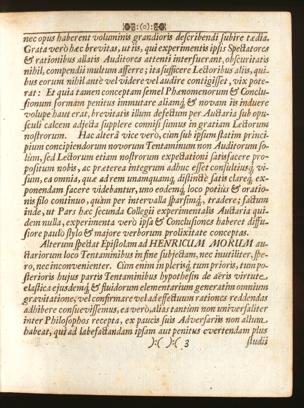 :(o):
nec opus haberent voluminis grandioris describendi subire tædia.
Grata verò hæc brevitas, ut iis, qui experimentis ipsis Spectatores
& rationibus allatis Auditores attenti interfuerant, obscuritatis
nihil, compendii multum afferre; ita sufficere Lectoribus aliis, qui-
bus eorum nihil aut vel videre vel audire contigisset, vix pote-
rat: Et quia tamen conceptam semel Phænomenorum & Conclu-
sionum formam penitus immutare aliamq; & novam iis induere
volupe haut erat, brevitatis illum defectum per Auctaria sub opu-
sculi calcem adjecta supplere commissi sumus in gratiam Lectorum
nostrorum. Hac alterâ vice verò, cùm sub ipsum statim princi-
pium concipiendorum novorum Tentaminum non Auditorum so-
lùm, sed Lectorum etiam nostrorum expectationi satisfacere pro-
positum nobis, ac præterea integrum adhuc esset consultiusq; vi-
sum, ea omnia, quæ ad rem unamquamq; distinctè satis clareq; ex-
ponendam facere videbantur, uno eodemq; loco potiùs & oratio-
nis filo continuo, quàm per intervalla sparsimq; tradere; factum
inde, ut Pars hæc secunda Collegii experimentalis Auctaria qui-
dem nulla, experimenta verò ipsa & Conclusiones haberet diffu-
siore paulò stylo & majore verborum prolixitate conceptas.
Alterum spectat Epistolam ad HENRICUM MORUM au-
ctariorum loco Tentaminibus in fine subjectam, nec inutiliter, spe-
ro, nec inconvenienter. Cùm enim in plerisq; tum prioris, tum po-
sterioris hujus partis Tentaminibus hypothesin de aëris virtute
elastica ejusdemq; & fluidorum elementarium generatim omnium
gravitatione, vel confirmare vel ad effectuum rationes reddendas
adhibere consuevissemus, ea verò, alias tantùm non universaliter
inter Philosophos recepta, ex paucis suis Adversariis non nullum
habeat, qui ad labefactandam ipsam aut penitus evertendam plus
):( ):( 3 studii